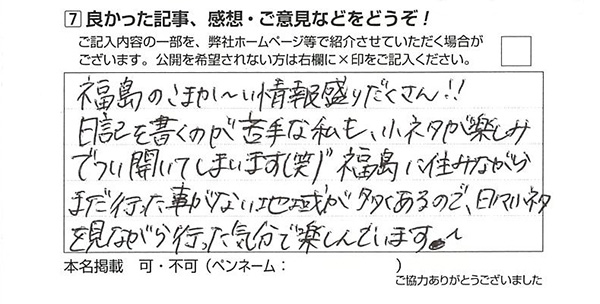 7 良かった記事、感想・ご意見などをどうぞ!
ご記入内容の一部を、弊社ホームページ等で紹介させていただく場合が
ございます。公開を希望されない方は右欄に×印をご記入ください。
福島のこまか〜い情報盛りだくさん!!
日記を書くのが苦手な私も、小ネタが楽しみ
でつい開いてしまいます(笑)” 福島に住みながら
まだ行った事がない地域が多くあるので、日々小ネタ
を見ながら行った気分で楽しんでいます。〜
本名掲載 可・不可(ペンネーム: )
ご協力ありがとうございました